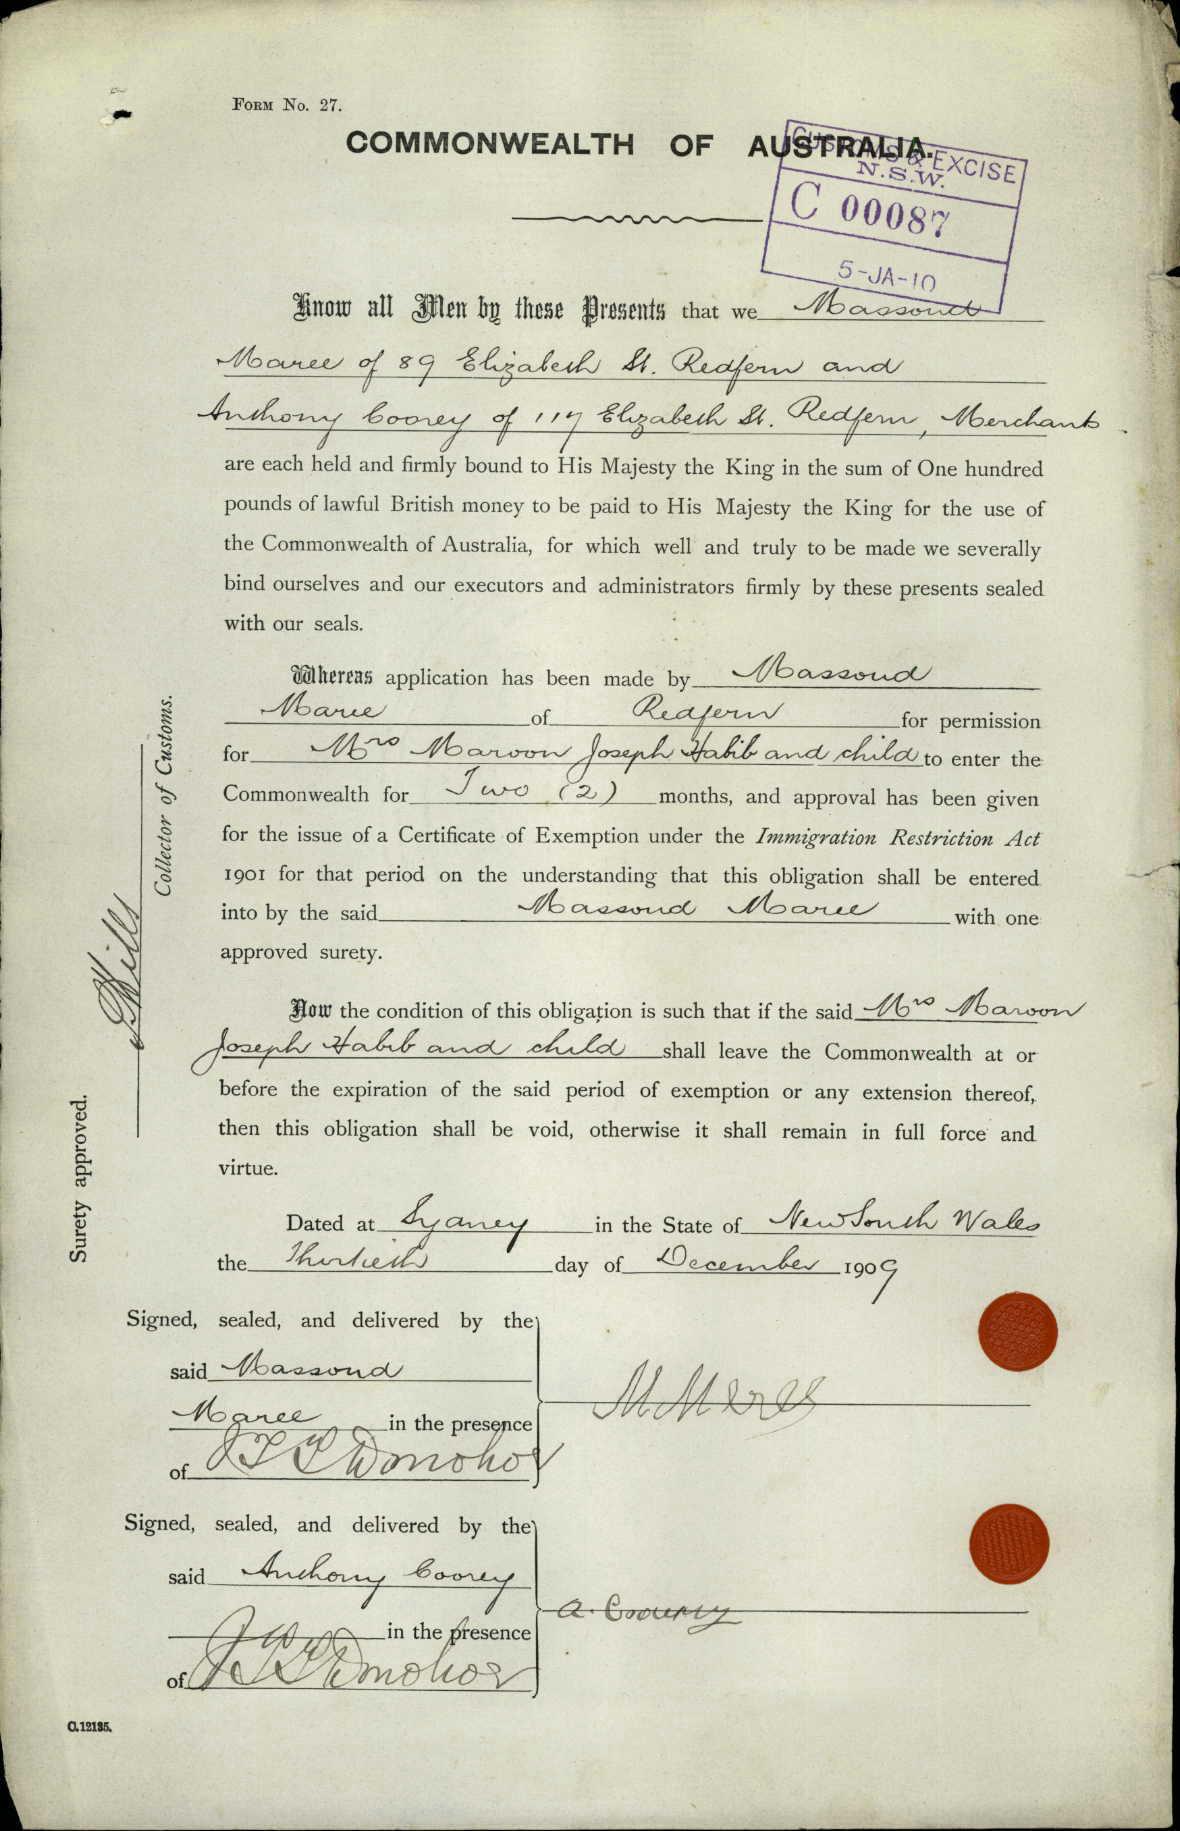 Form No. 27.
COMMONWEALTH OF AUSTRALIA.
CUSTOMS & EXCISE
N.S.W.
C 00087
5-JA-10
Know all Men by these Presents that we Massoud
Maree of 89 Elizabeth St. Redfern and
Anthony Coorey of 117 Elizabeth St. Redfern, Merchants
are each held and firmly bound to His Majesty the King in the sum of One hundred
pounds of lawful British money to be paid to His Majesty the King for the use of
the Commonwealth of Australia, for which well and truly to be made we severally
bind ourselves and our executors and administrators firmly by these presents sealed
with our seals.
Whereas application has been made by Massoud
Maree of Redfern for permission
for Mrs Maroon Joseph Habib and child to enter the
Commonwealth for Two (2) months, and approval has been given
for the issue of a Certificate of Exemption under the Immigration Restriction Act
1901 for that period on the understanding that this obligation shall be entered
into by the said Massoud Maree with one
approved surety.
Now the condition of this obligation is such that if the said Mrs Maroon
Joseph Habib and child shall leave the Commonwealth at or
before the expiration of the said period of exemption or any extension thereof,
then this obligation shall be void, otherwise it shall remain in full force and
virtue.
Surety approved.
Mills
Collector of Customs.
Dated at Sydney in the State of New South Wales
the Thirtieth day of December 1909
Signed, sealed, and delivered by the
said Massoud
Maree in the presence
of Donohoe
M Maree
Signed, sealed, and delivered by the
said Anthony Coorey
in the presence
of Donohoe
A. Coorey
C.12135.